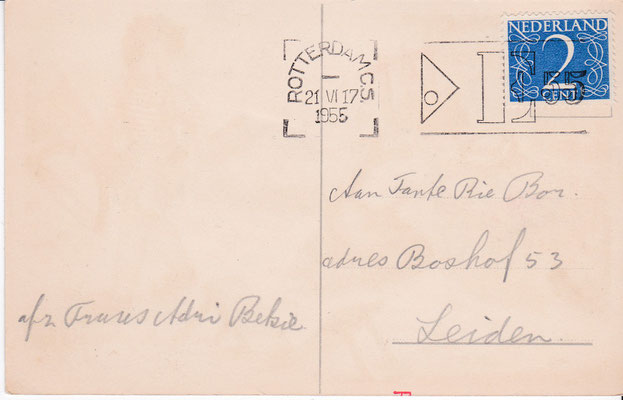 NEDERLAND
2
CENT
ROTTERDAM C.S
21 VI 17
1955
E 55
Aan Tante Rie Bor.
adres Boshof 53
Leiden.
afz Truus Adri Betsie